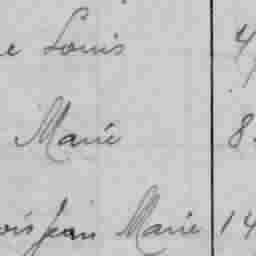 e Louis 4
Marie 8
ois Jean Marie 14